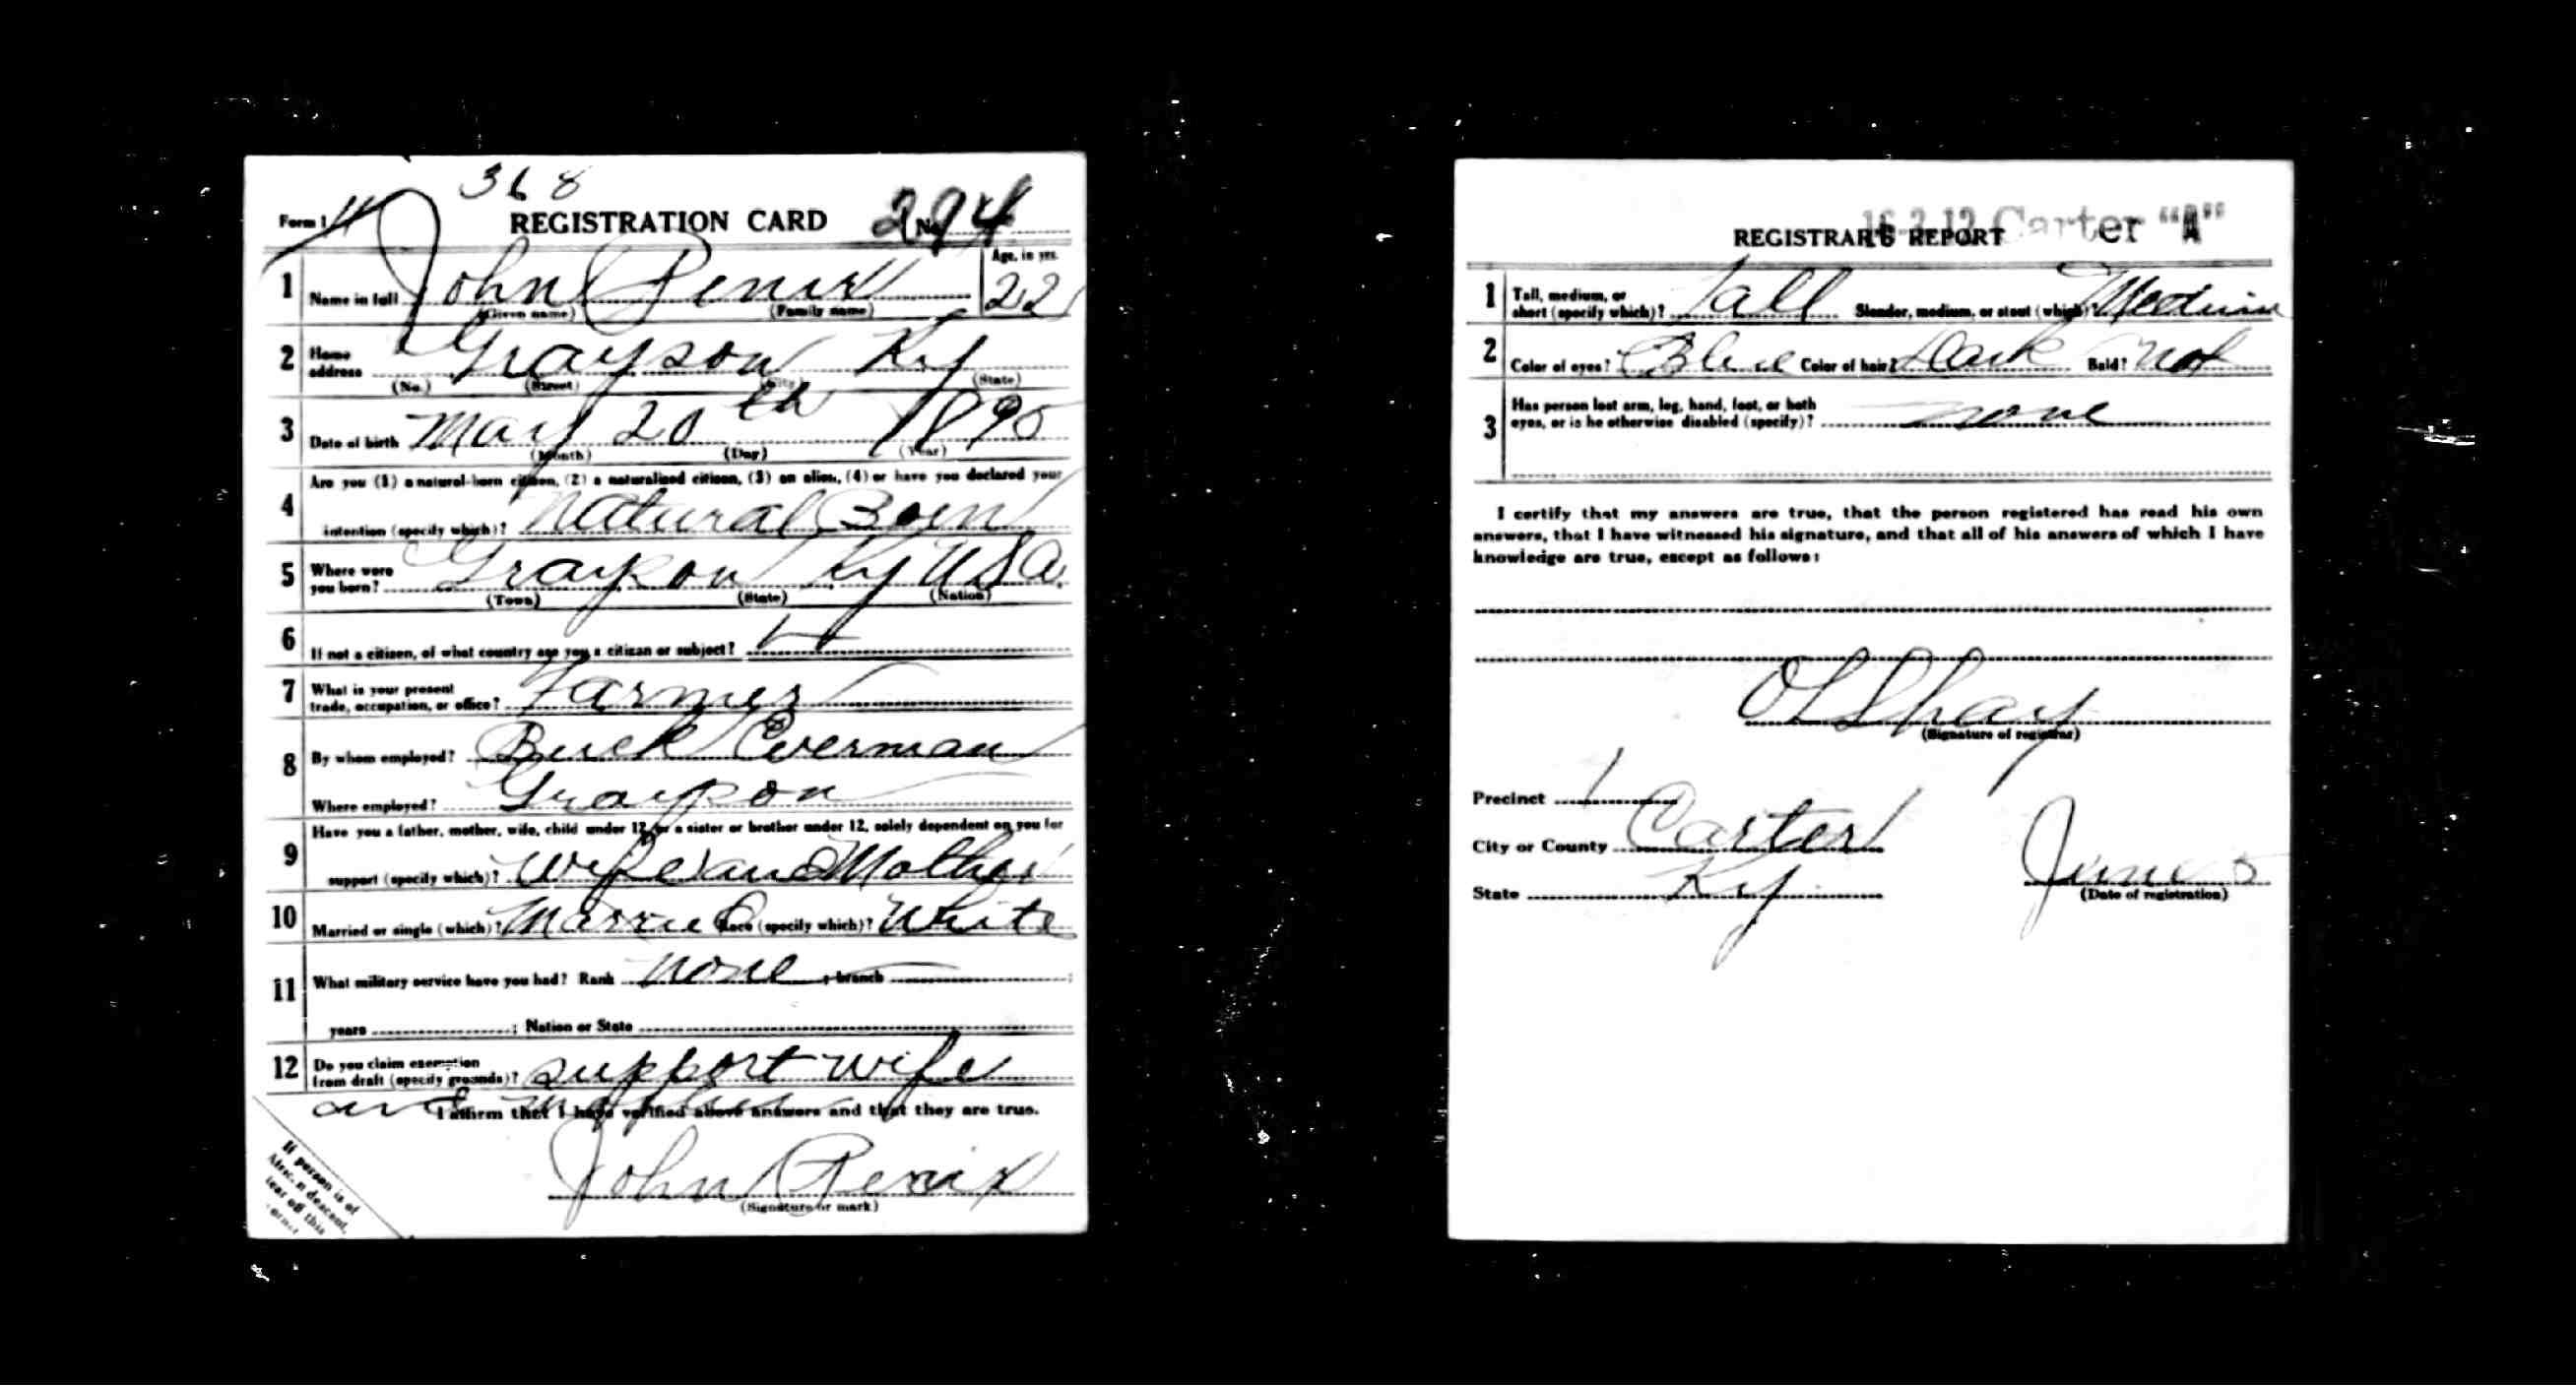 368
Form 1 REGISTRATION CARD No. 294
1 Name in full John Renix Age, in yrs. 22
(Given name) (Family name)
2 Home address Grayson Ky
(No.) (Street) (City) (State)
3 Date of birth May 20th 1895
(Month) (Day) (Year)
4 Are you (1) a natural-born citizen, (2) a naturalized citizen, (3) an alien, (4) or have you declared your
intention (specify which)? Natural Born
5 Where were you born? Grayson Ky USA
(Town) (State) (Nation)
6 If not a citizen, of what country are you a citizen or subject?
7 What is your present trade, occupation, or office? Farmer
8 By whom employed? Buck Everman
Where employed? Grayson
9 Have you a father, mother, wife, child under 12, or a sister or brother under 12, solely dependent on you for
support (specify which)? Wife and Mother
10 Married or single (which)? Married Race (specify which)? White
11 What military service have you had? Rank none ; branch ;
years ; Nation or State
12 Do you claim exemption from draft (specify grounds)? support wife
and mother
I affirm that I have verified above answers and that they are true.
John Renix
(Signature or mark)
If person is of
African descent,
tear off this
corner
16-2-12 Carter "A"
REGISTRAR'S REPORT
1 Tall, medium, or short (specify which)? Tall Slender, medium, or stout (which)? Medium
2 Color of eyes? Blue Color of hair? Dark Bald? Not
3 Has person lost arm, leg, hand, foot, or both
eyes, or is he otherwise disabled (specify)? none
I certify that my answers are true, that the person registered has read his own
answers, that I have witnessed his signature, and that all of his answers of which I have
knowledge are true, except as follows:
OL Shay
(Signature of registrar)
Precinct 1
City or County Carter
State Ky June 5
(Date of registration)